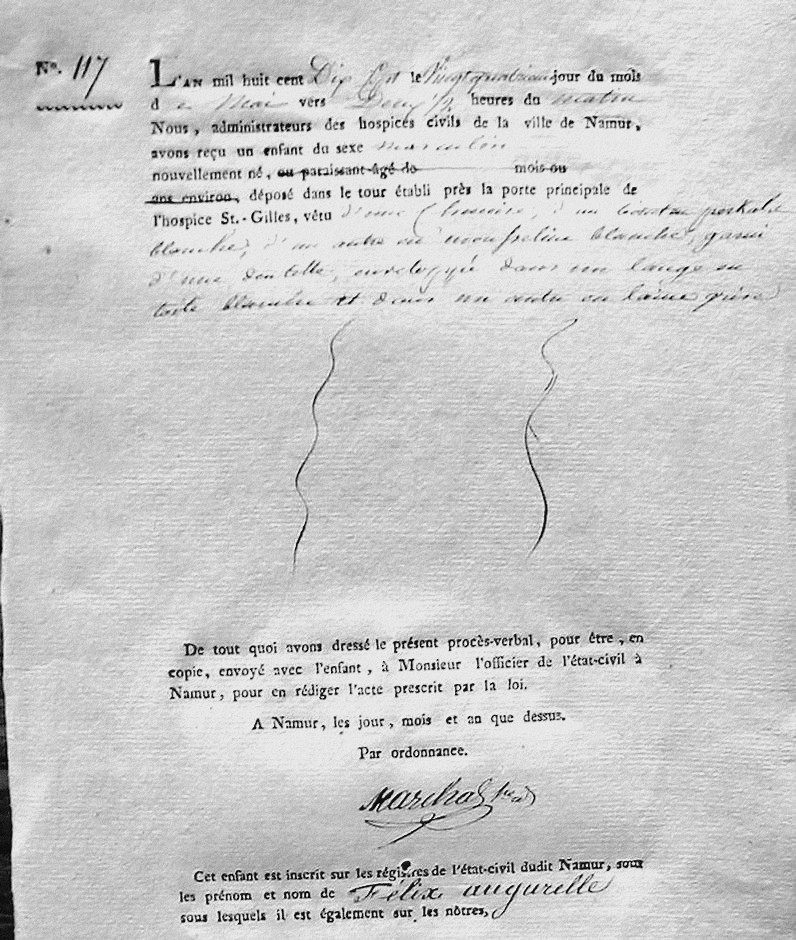 N°. 117
L'AN mil huit cent Dix Sept le Vingt quatrieme jour du mois
d e Mai vers Deux 1/2 heures du matin
Nous, administrateurs des hospices civils de la ville de Namur,
avons reçu un enfant du sexe masculin
nouvellement né, ou paraissant âgé de mois ou
ans environ, déposé dans le tour établi près la porte principale de
l'hospice St.-Gilles, vêtu d'une Chemise, d'un
blanche, d'un autre en mousseline blanche, garni
d'une dentelle, enveloppé dans un lange en
toile blanche et dans un autre en laine grise
De tout quoi avons dressé le présent procès-verbal, pour être, en
copie, envoyé avec l'enfant, à Monsieur l'officier de l'état-civil à
Namur, pour en rédiger l'acte prescrit par la loi.
A Namur, les jour, mois et an que dessus.
Par ordonnance.
Marchal
Cet enfant est inscrit sur les régistres de l'état-civil dudit Namur, sous
les prénom et nom de Félix angurelle
sous lesquels il est également sur les nôtres,